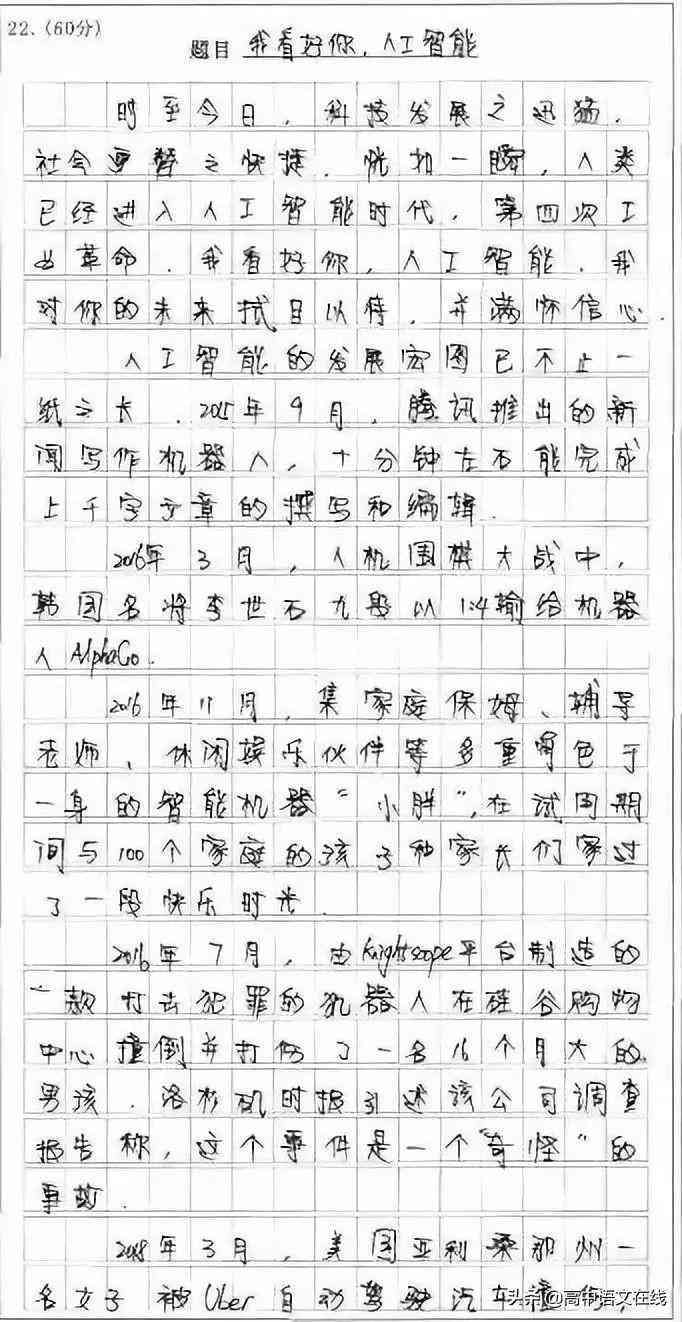 22.(60分)
题目 我看好你,人工智能
时至今日,科技发展之迅猛,
社会更替之快捷,恍如一瞬,人类
已经进入人工智能时代,第四次工
业革命.我看好你,人工智能.我
对你的未来拭目以待,并满怀信心.
人工智能的发展宏图已不止一
纸之长.2015年9月,腾讯推出的新
闻写作机器人,十分钟左右能完成
上千字文章的撰写和编辑.
2016年3月,人机围棋大战中,
韩国名将李世石九段以1:4输给机器
人AlphaGo.
2016年11月,集家庭保姆、辅导
老师、休闲娱乐伙伴等多重角色于
一身的智能机器"小胖",在试用期
间与100个家庭的孩子和家长们家过
了一段快乐时光.
2016年7月,由Knightscope平台制造的
一款打击犯罪的机器人在硅谷购物
中心撞倒并打伤了一名16个月大的
男孩.洛杉矶时报引述该公司调查
报告称,这个事件是一个"奇怪"的
事故.
2018年3月,美国亚利桑那州一
名女子被Uber自动驾驶汽车撞伤,
头条@高中语文在线